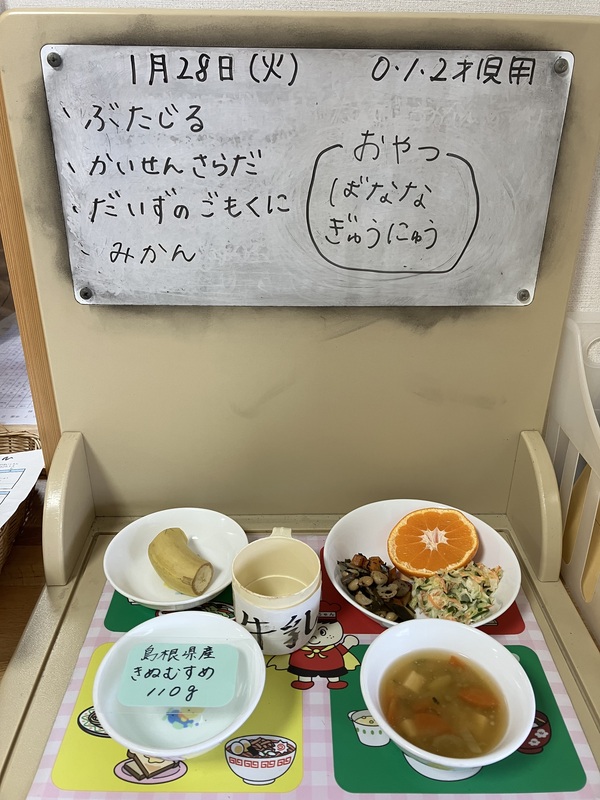 1月28日(火) 0.1.2才児用
ぶたじる
かいせんさらだ
だいずのごもくに
みかん
おやつ
ばなな
ぎゅうにゅう
牛乳
島根県産
きぬむすめ
110g